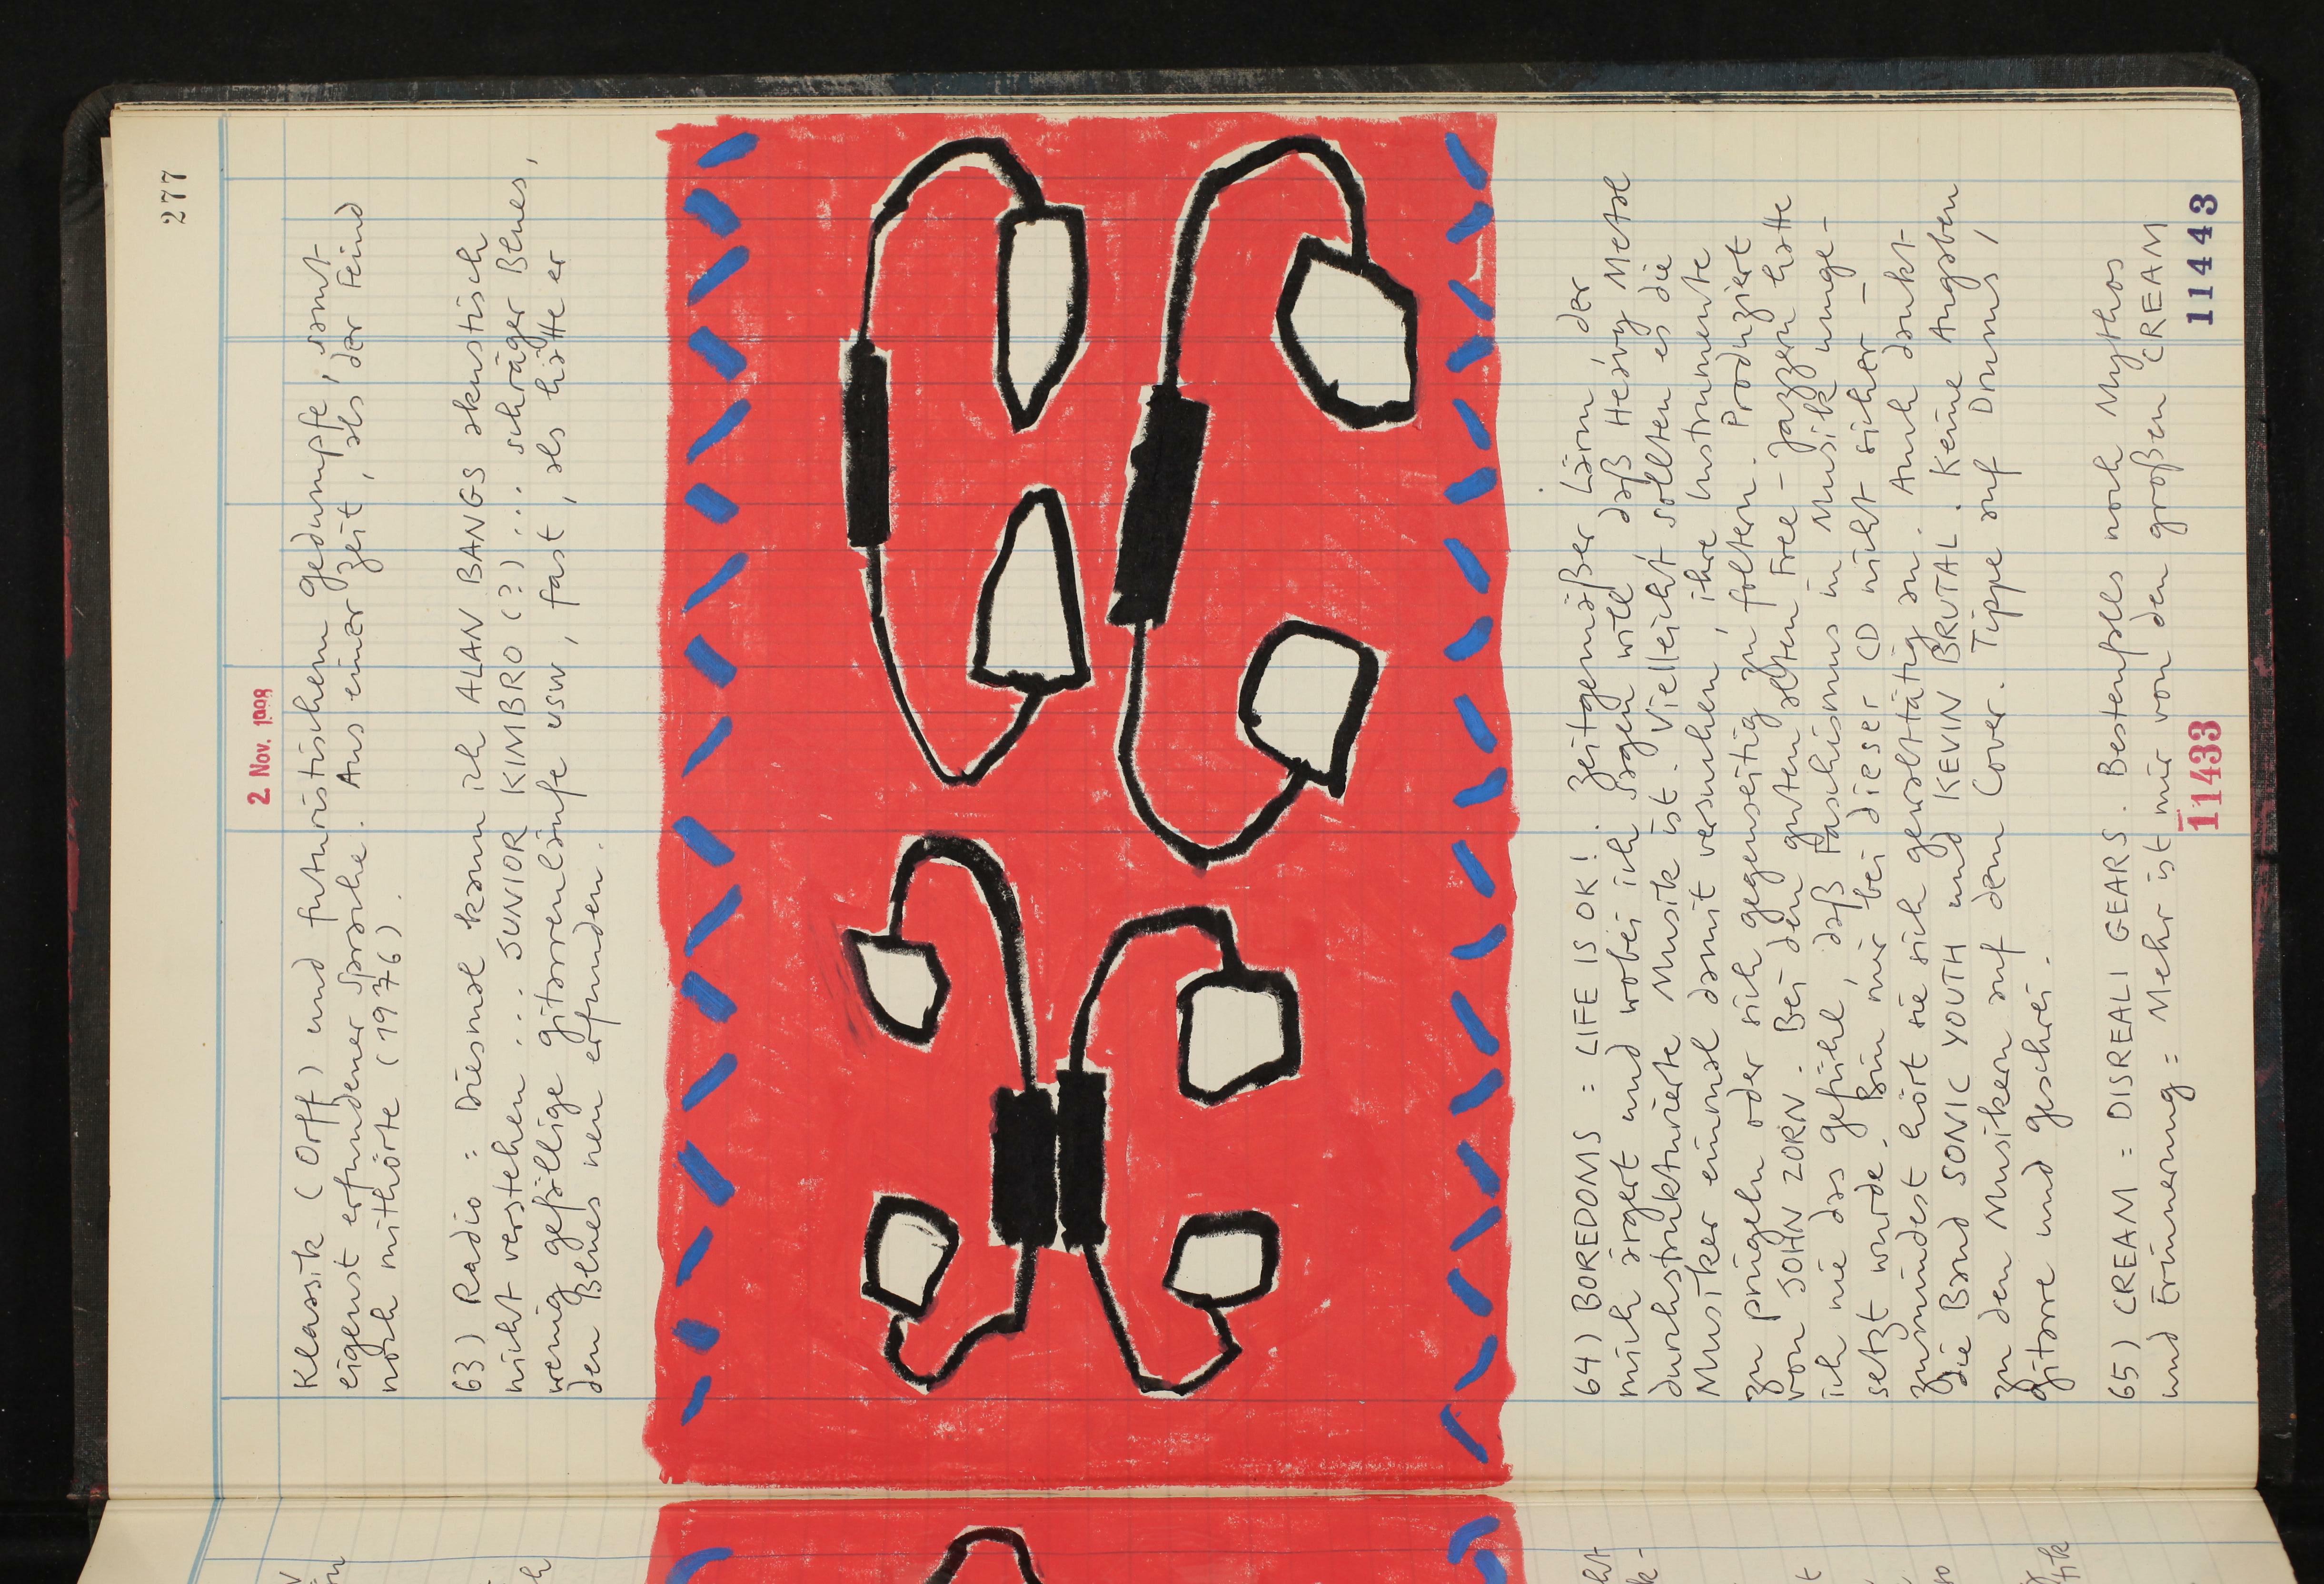 277
2. Nov. 1998
Klassik (Orff) und futuristischem Gedumpfe, samt
eigenst erfundener Sprache. Aus einer Zeit, als der Feind
noch mithörte (1976).
63) Radio : Diesmal kann ich ALAN BANGS akustisch
nicht verstehen ... JUNIOR KIMBRO (?) ... schräger Blues,
wenig gefällige Gitarrenläufe usw, fast, als hätte er
den Blues neu erfunden.
64) BOREDOMS : LIFE IS OK! Zeitgemäßer Lärm, der
mich ärgert und wobei ich sagen will, daß Heavy Metal
durchstrukturierte Musik ist. Vielleicht sollten es die
Musiker einmal damit versuchen, ihre Instrumente
zu prügeln oder sich gegenseitig zu foltern. Produziert
von JOHN ZORN. Bei den guten alten Free-Jazzern hatte
ich nie das Gefühl, daß Faschismus in Musik umge-
setzt wurde. Bin mir bei dieser CD nicht sicher –
zumindest hört sie sich gewalttätig an. Auch dankt
die Band SONIC YOUTH und KEVIN BRUTAL. Keine Angaben
zu den Musikern auf dem Cover. Tippe auf Drums,
Gitarre und Geschrei.
65) CREAM : DISREALI GEARS. Bestenfalls noch Mythos
und Erinnerung : Mehr ist mir von den großen CREAM
11433
11443